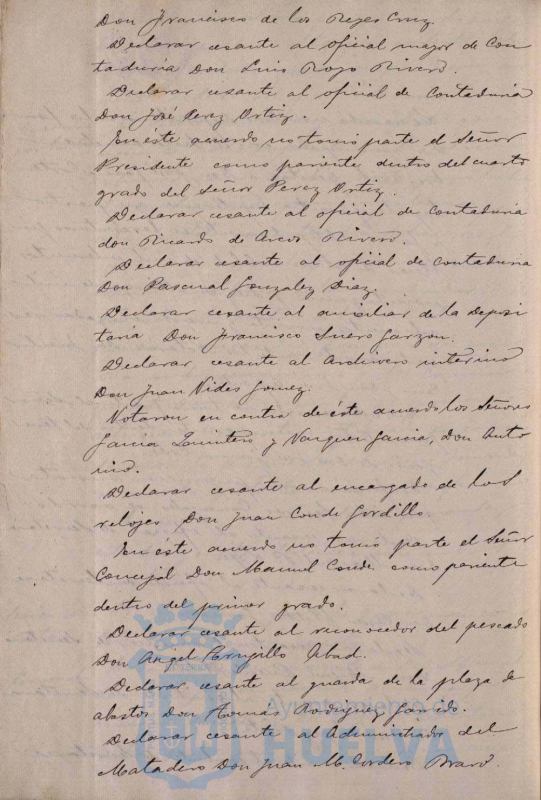 Don Francisco de los Reyes Cruz.
Declarar cesante al oficial mayor de Con
taduría Don Luis Rojo Rivero.
Declarar cesante al oficial de Contaduria
Don José Perez Ortiz.
En éste acuerdo no tomó parte el Señor
Presidente como pariente dentro del cuarto
grado del Señor Perez Ortiz.
Declarar cesante al oficial de Contaduria
don Ricardo de Arcos Rivero.
Declarar cesante al oficial de Contaduria
Don Pascual Gonzalez Diaz.
Declarar cesante al auxiliar de la Deposi
taría Don Francisco Suero Garzon.
Declarar cesante al Archivero interino
Don Juan Vides Gomez.
Votaron en contra de éste acuerdo los Señores
Garcia Quintero y Vazquez Garcia, Don Anto
nio.
Declarar cesante al encargado de los
relojes Don Juan Conde Gordillo.
En éste acuerdo no tomó parte el Señor
Concejal Don Manuel Conde como pariente
dentro del primer grado.
Declarar cesante al reconocedor del pescado
Don Angel Abad.
Declarar cesante al guarda de la plaza de
abastos Don Tomás Rodriguez Garrido.
Declarar cesante al Administrador del
Matadero Don Juan M. Cordero Bravo.
Ayuntamiento de
HUELVA